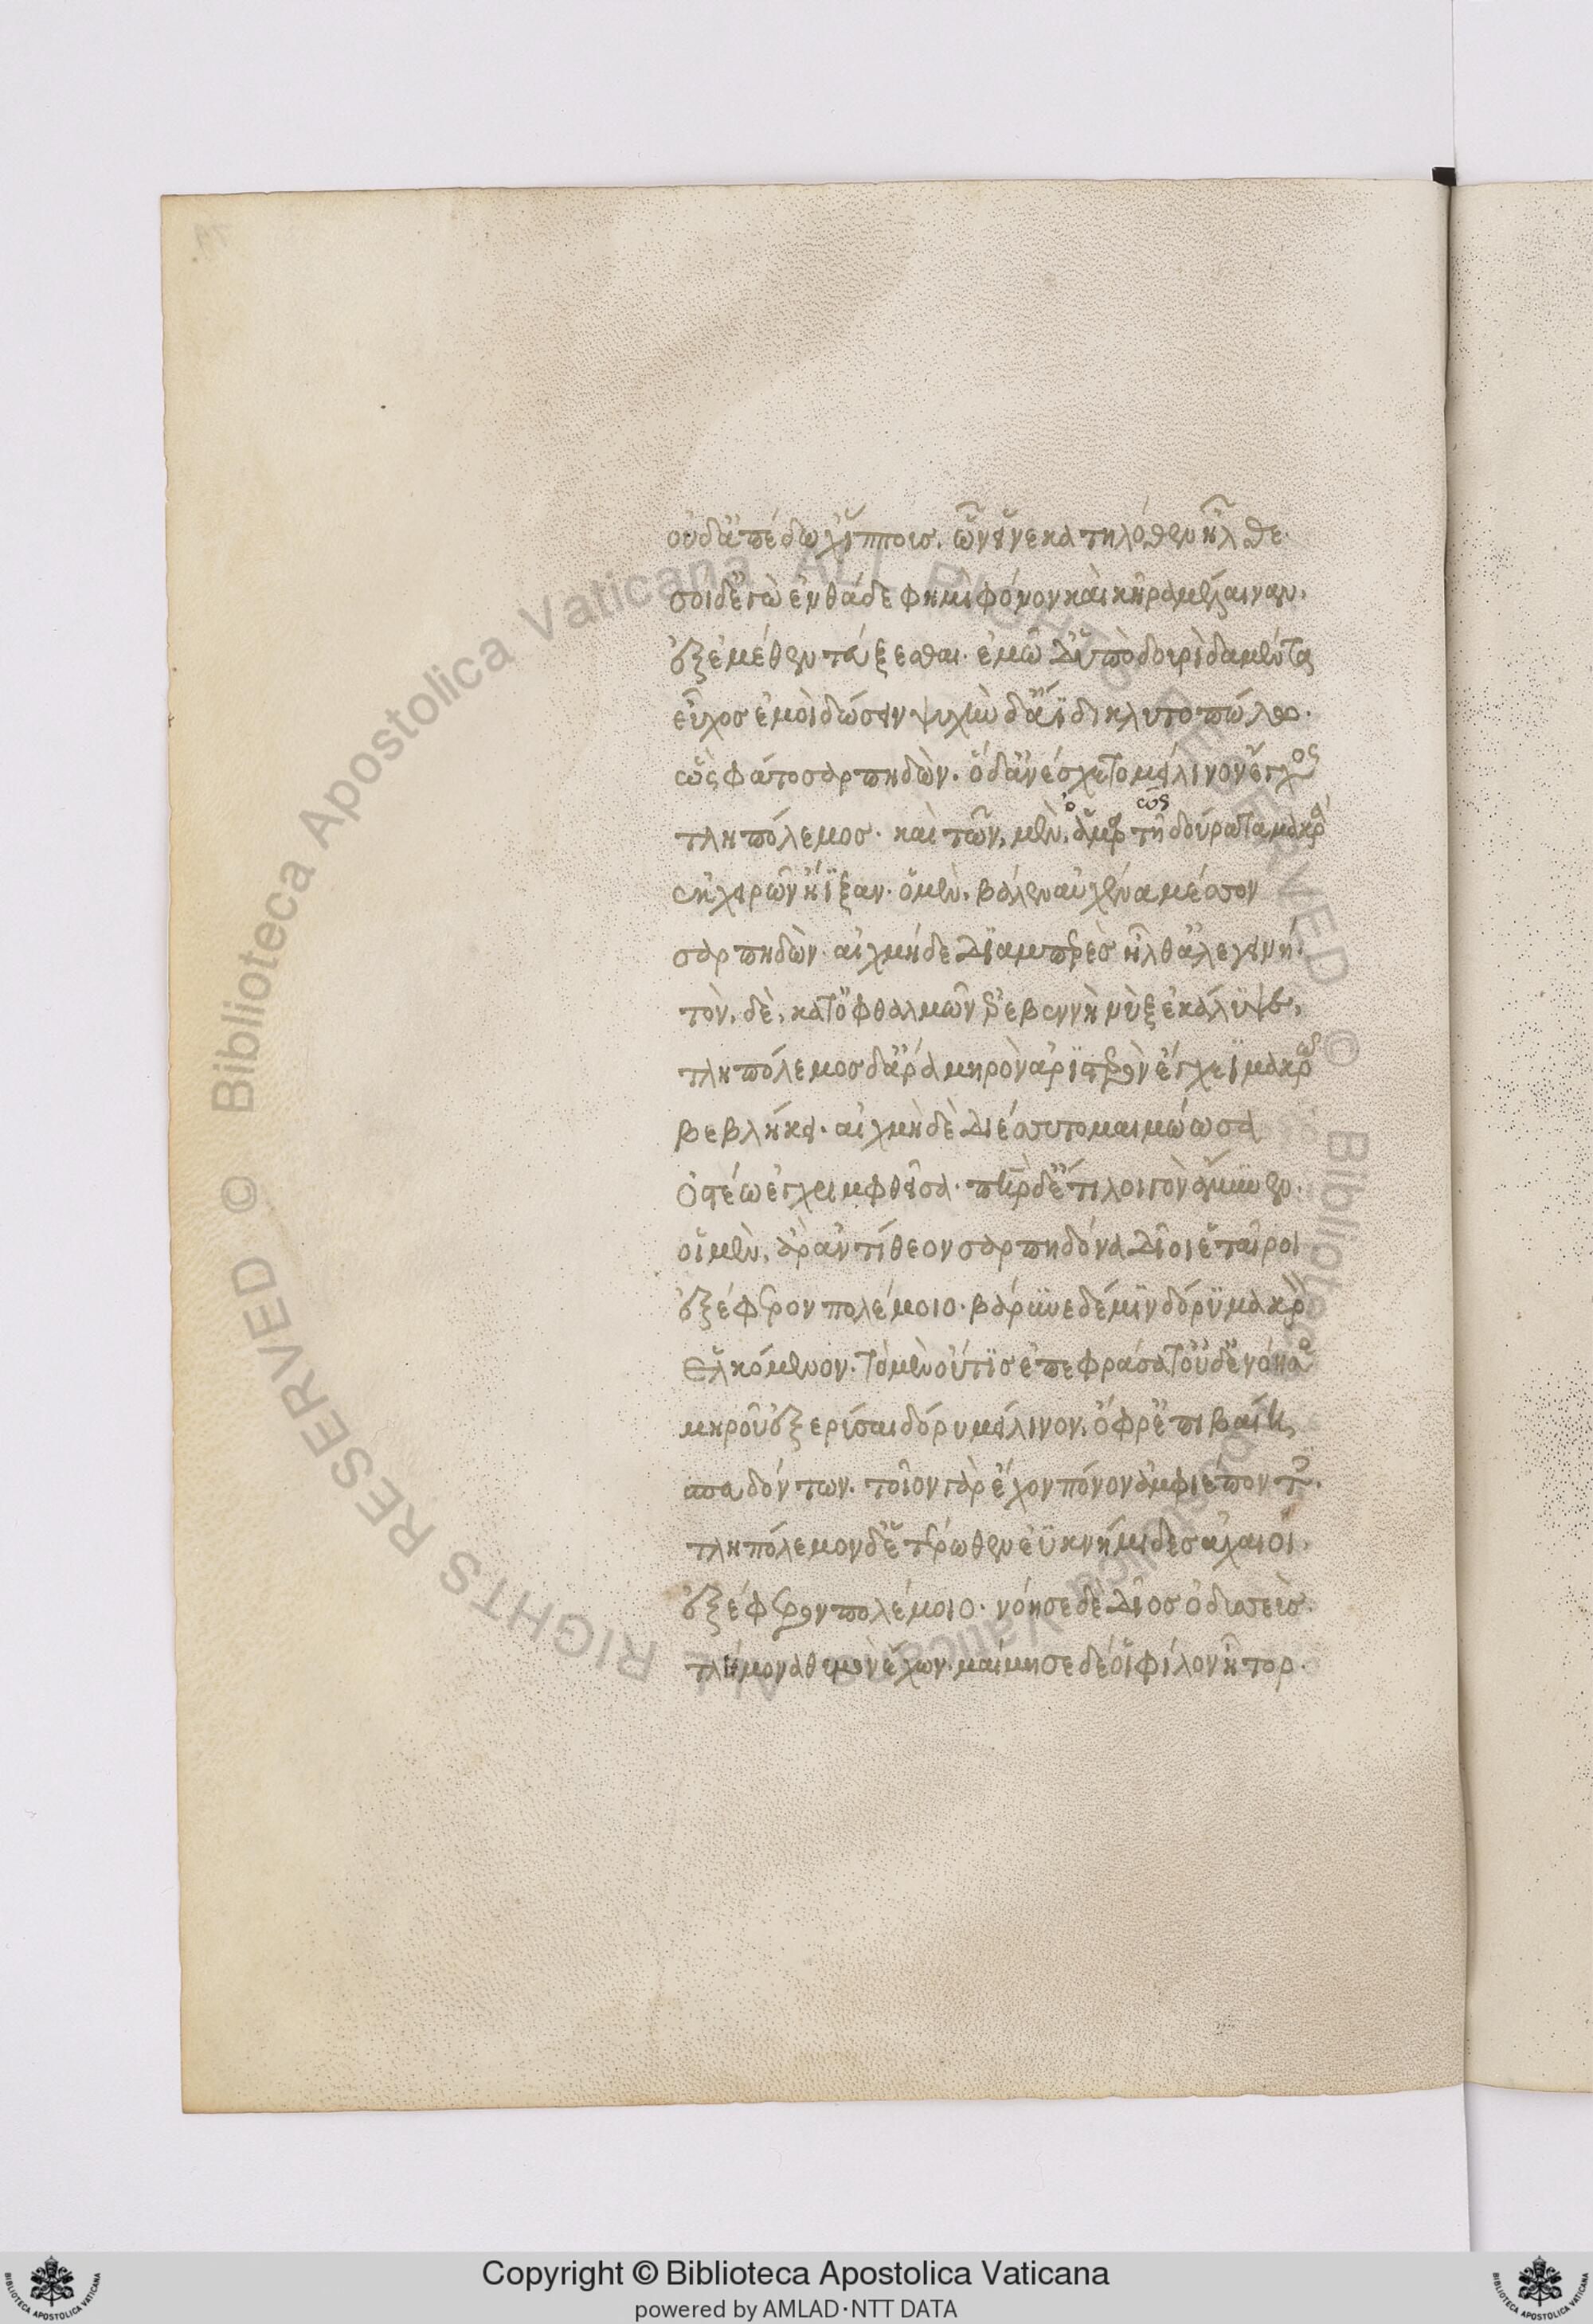 οὐδ' ἀπέδωχ' ἵππους, ὧν εἵνεκα τηλόθεν ἦλθε.
σοὶ δ' ἐγὼ ἐνθάδε φημὶ φόνον καὶ κῆρα μέλαιναν,
ἐξ ἐμέθεν τεύξεσθαι. ἐμῶ δ' ὑπὸ δουρὶ δαμέντα
εὖχος ἐμοὶ δώσειν ψυχὴν δ' ἄϊδι κλυτοπώλω.
ὣς φάτο σαρπηδών. ὁ δ' ἀνέσχετο μείλινον ἔγχος
τληπόλεμος. καὶ τῶν, μὲν, ἁμαρτῆ δούρατα μακρὰ
ἐκ χειρῶν ἤϊξαν. ὁ μὲν, βάλεν αὐχένα μέσσον
σαρπηδών. αἰχμὴ δὲ διαμπερὲς ἦλθ' ἀλεγεινή.
τὸν, δὲ, κατ' ὀφθαλμῶν ἐρεβεννὴ νὺξ ἐκάλυψε,
τληπόλεμος δ' ἄρα μηρὸν ἀριστερὸν ἔγχεϊ μακρῶ
βεβλήκει. αἰχμὴ δὲ διέσσυτο μαιμώωσα
ὀστέω ἐγχριμφθεῖσα. πατὴρ δ' ἔτι λοιγὸν ἄμυνεν.
οἱ μὲν, ἄρ' ἀντίθεον σαρπηδόνα δῖοι ἑταῖροι
ἐξέφερον πολέμοιο. βάρυνε δέ μιν δόρυ μακρὸν
ἑλκόμενον. τὸ μὲν οὔτις ἐπεφράσατ' οὐδ' ἐνόησε
μηροῦ ἐξερύσαι δόρυ μείλινον, ὄφρ' ἐπιβαίη,
σπευδόντων. τοῖον γὰρ ἔχον πόνον ἀμφιέποντες.
τληπόλεμον δ' ἑτέρωθεν ἐϋκνήμιδες ἀχαιοὶ.
ἐξέφερον πολέμοιο. νόησε δὲ δῖος ὀδυσσεὺς.
τλήμονα θυμὸν ἔχων. μαίμησε δέ οἱ φίλον ἦτορ.
© Biblioteca Apostolica Vaticana ALL RIGHTS RESERVED
Copyright © Biblioteca Apostolica Vaticana
powered by AMLAD·NTT DATA